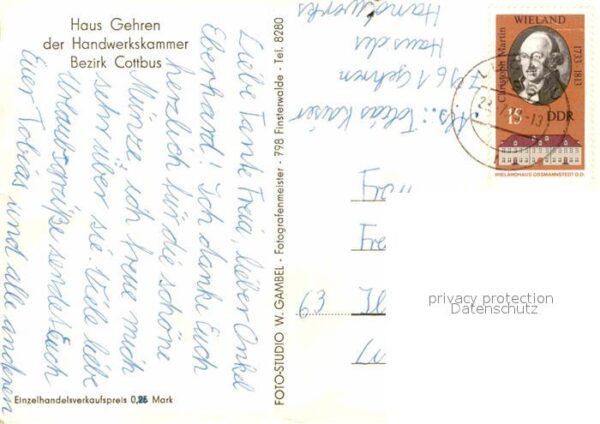 Haus Gehren
der Handwerkskammer
Bezirk Cottbus
Liebe Tante Freia, lieber Onkel
Eberhard! Ich danke Euch
herzlich für die schöne
Münze ich freue mich
sehr über sie. Viele liebe
Urlaubsgrüße sendet Euch
Euer Tobias und alle anderen
Einzelhandelsverkaufspreis 0,25 Mark
FOTO-STUDIO W. GAMBEL - Fotografenmeister - 798 Finsterwalde - Tel. 8280
Abs.: Tobias Kaiser
7961 Gehren
Haus des
Handwerks
WIELAND
Christoph Martin
1733-1813
15
DDR
WIELANDHAUS OSSMANNSTEDT O.D.
63
privacy protection
Datenschutz